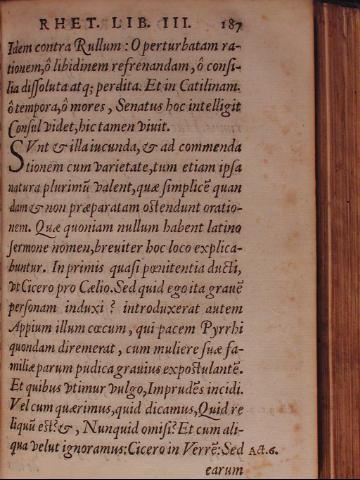 RHET. LIB. III. 187
Idem contra Rullum: O perturbatam ra-
tionem, ô libidinem refrenandam, ô consi-
lia dissoluta atq; perdita. Et in Catilinam.
ô tempora, ô mores, Senatus hoc intelligit
Consul videt, hic tamen vivit.
SVnt & illa iucunda, & ad commenda
tionem cum varietate, tum etiam ipsa
natura plurimũ valent, quæ simplicẽ quan
dam & non præparatam ostendunt oratio-
nem. Quæ quoniam nullum habent latino
sermone nomen, breviter hoc loco explica-
buntur. In primis quasi pœnitentia ducti,
vt Cicero pro Cælio. Sed quid ego ita gravẽ
personam induxi? introduxerat autem
Appium illum cœcum, qui pacem Pyrrhi
quondam diremerat, cum muliere suæ fa-
miliæ parum pudica gravius expostulantẽ.
Et quibus vtimur vulgo, Imprudẽs incidi.
Vel cum quærimus, quid dicamus, Quid re
liquũ est? &, Nunquid omisi? Et cum ali-
qua velut ignoramus: Cicero in Verrẽ: Sed Act. 6.
earum